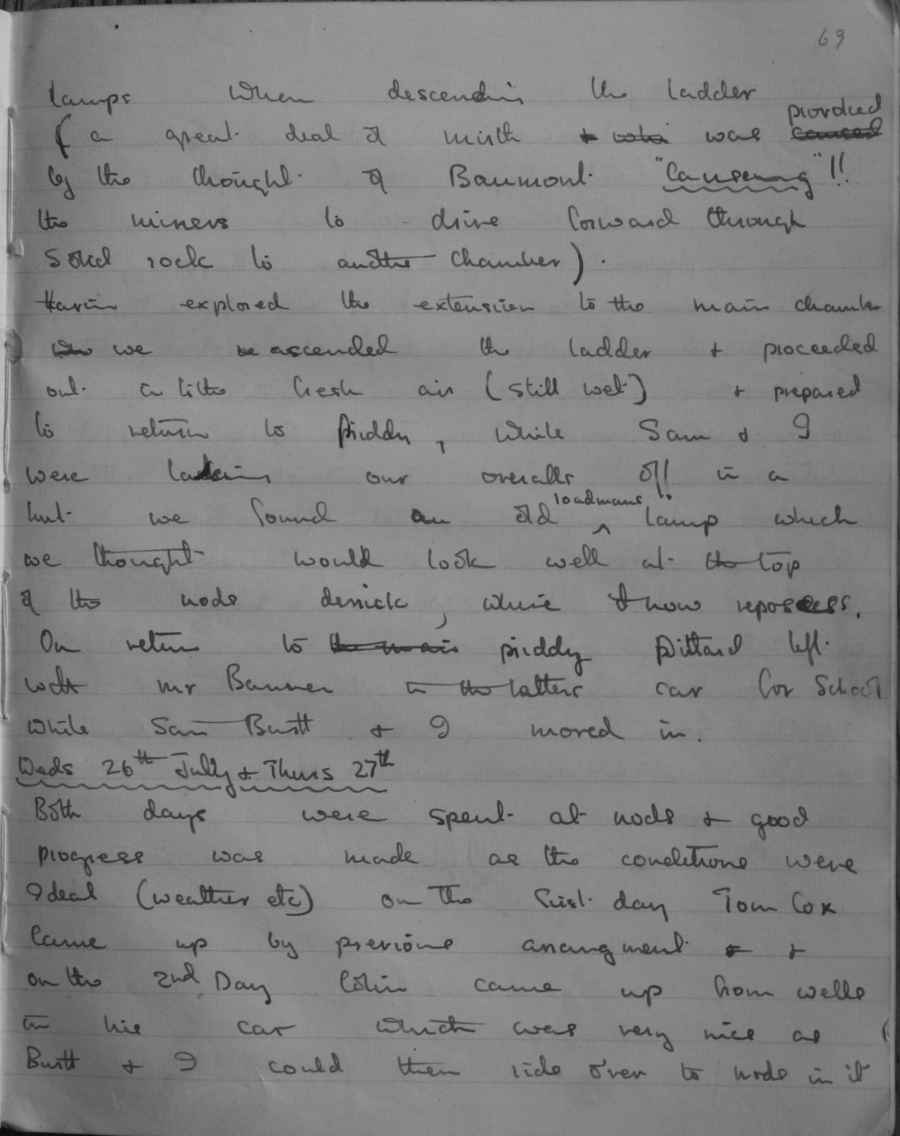 69
Lamps when descending the ladder
(a great deal of mirth was caused provoked
by the thought of Baumont "Causeing"!!
the miners to drive forward through
Solid rock to another chamber).
Having explored the extension to the main chamber
we ascended the ladder + proceeded
out into the fresh air (still wet) + prepared
to return to Priddy, while Sam & I
were taking our overalls off in a
hut we found an old loadmans lamp which
we thought would look well at the top
of the nods derrick, where it now reposess.
On return to the main priddy Pittard left
with mr Banner in the latters car for School
while Sam Butt + I moved in.
Weds 26th July + Thurs 27th
Both days were spent at nods + good
progress was made as the conditions were
Ideal (weather etc) on the first day Tom Cox
came up by previous arrangment + +
on the 2nd Day Colin came up from wells
in his car which was very nice as
Butt + I could then ride over to nods in it